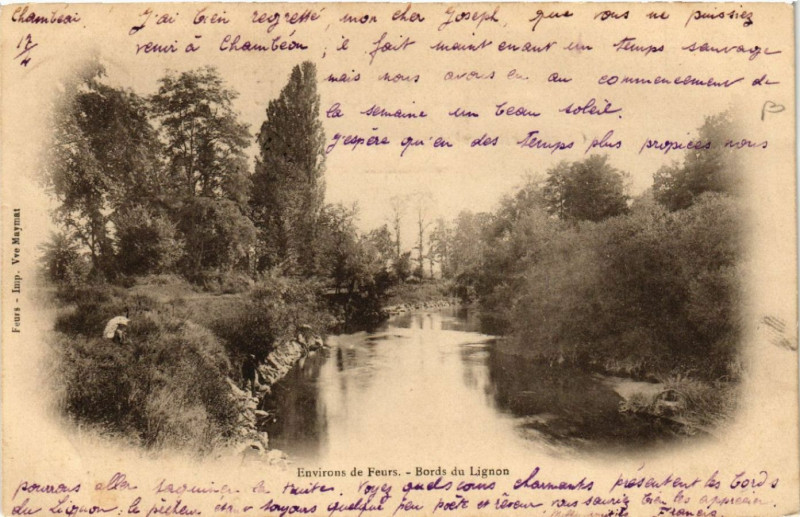 Chambéon
17/4
J'ai bien regretté, mon cher Joseph, que vous ne puissiez
venir à Chambéon; il fait maintenant un temps sauvage
mais nous avons eu au commencement de
la semaine un beau soleil.
J'espère qu'en des temps plus propices nous
Feurs - Imp. Vve Maymat
Environs de Feurs. - Bords du Lignon
pourrons aller taquiner la truite. Voyez quels coins charmants présentent les bords
du Lignon; le pêcheur est toujours quelque peu poète et rêveur, vous saurez bien les apprécier.
Francis